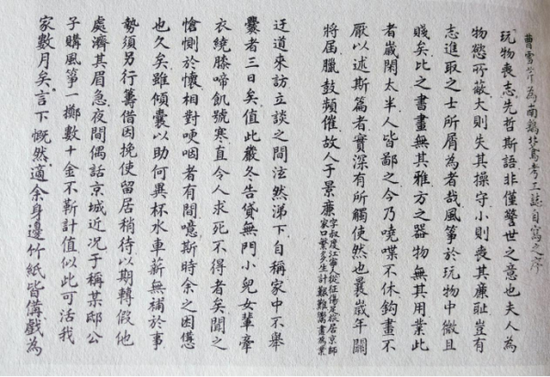 曹雪芹為南鷂北鳶考工誌自寫之序
玩物喪志先哲斯語非僅警世之意也夫人為
物慾所蔽大則失其操守小則喪其廉耻豈有
志進取之士所屑為者哉風箏於玩物中微且
賤矣比之書畫無其雅方之器物無其用業此
者歲閑太半人皆鄙之今乃嘵喋不休鈎畫不
厭以述斯篇者實深有所觸使然也曩歲年關
將屆臘鼓頻催故人于景廉
字叔度江寧人從征傷足旅居京師
家口繁多生計艱難鬻畫為業
迂道來訪立談之間泫然涕下自稱家中不舉
爨者三日矣值此嚴冬告貸無門小兒女輩牽
衣繞膝啼飢號寒直令人求死不得者矣聞之
愴惻於懷相對哽咽者有間噫斯時余之困憊
也久矣雖傾囊以助何異杯水車薪無補於事
勢須另行籌借因挽使留居稍待以期轉假他
處濟其眉急夜間偶話京城近况于稱某邸公
子購風箏一擲數十金不靳計值似此可活我
家數月矣言下慨然適余身邊竹紙皆備戲為